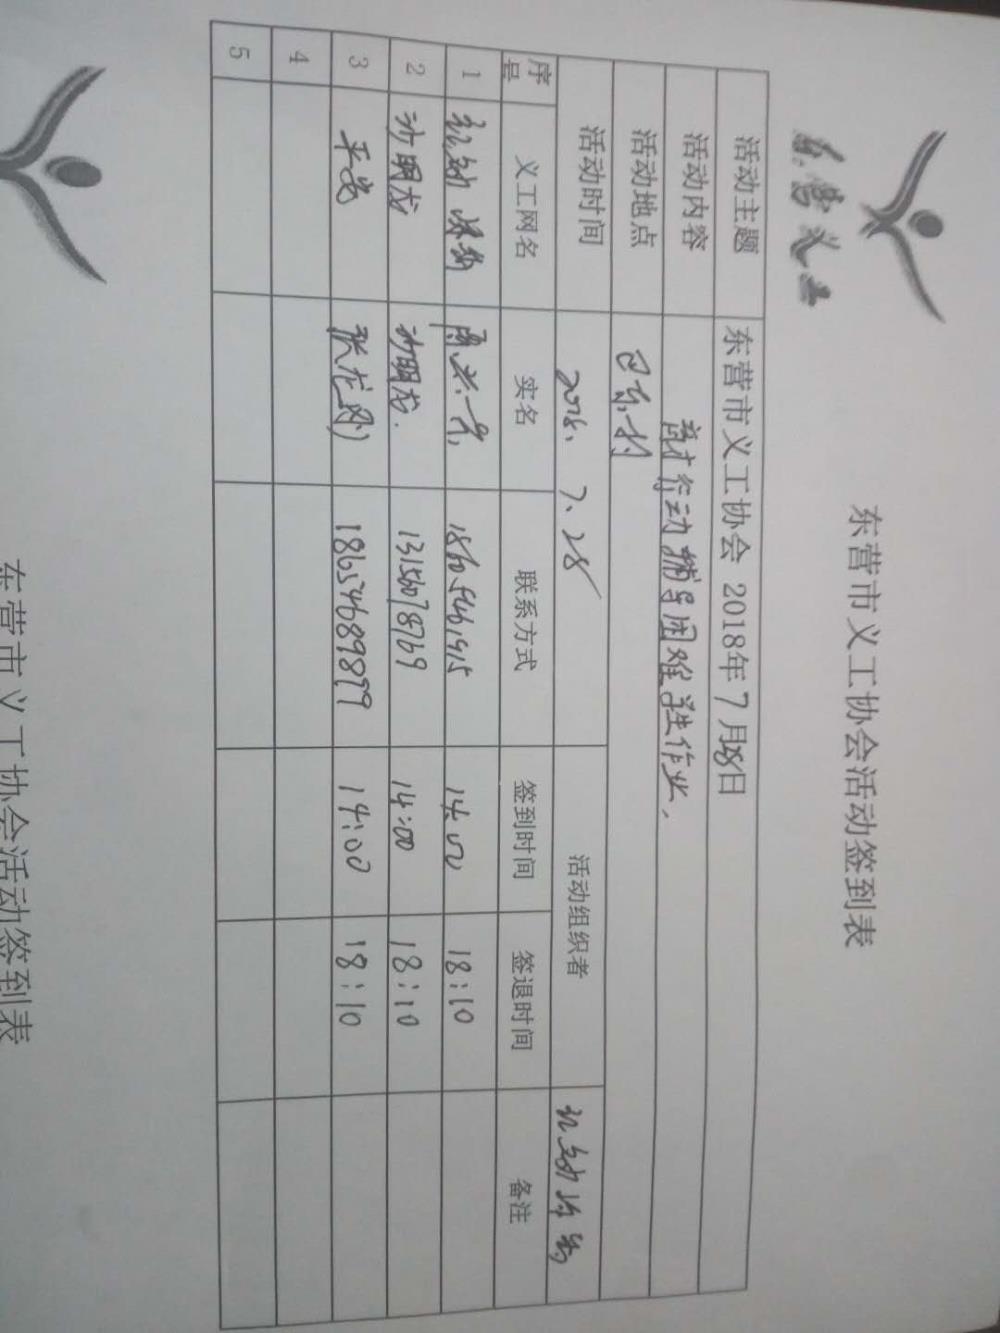 东营义工
东营市义工协会活动签到表
活动主题 东营市义工协会 2018年7月28日
活动内容 行动辅导困难学生作业、
活动地点 巴东村
活动时间 2018、7、28 活动组织者
序号 义工网名 实名 联系方式 签到时间 签退时间 备注
1 18605461915 14:00 18:10
2 孙明龙 孙明龙. 13156078769 14:00 18:10
3 平安 张龙刚 18654689899 14:00 18:10
4
5
东营市义工协会活动签到表